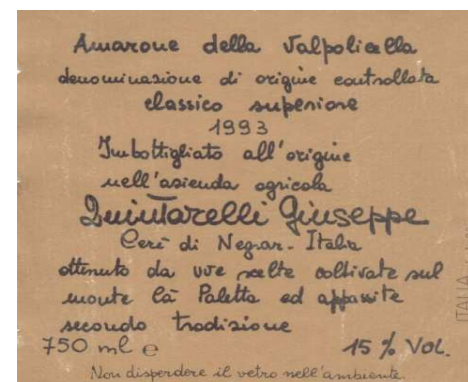 Amarone della Valpolicella
denominazione di origine controllata
classico superiore
1993
Imbottigliato all'origine
nell'azienda agricola
Quintarelli Giuseppe
Cerè di Negrar - Italia
ottenuto da uve scelte coltivate sul
monte Cà Paletta ed appassite
secondo tradizione
750 ml e
15 % VOL.
Non disperdere il vetro nell'ambiente.
ITALIA